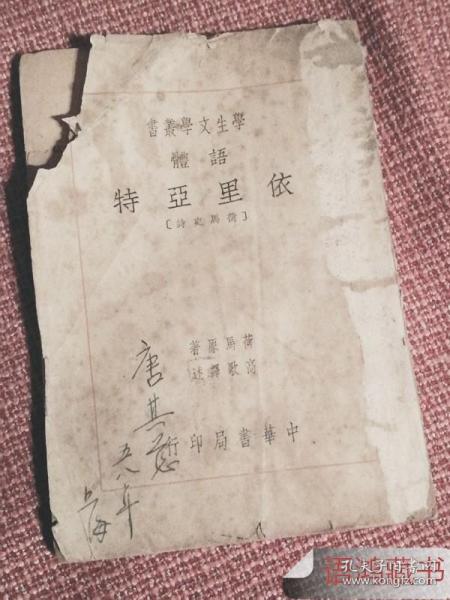 學生文學叢書
語體
依里亞特
〔荷馬史詩〕
荷馬原著
高歌譯述
中華書局印行
唐其慈
五八年
上海
孔夫子旧书网
kongfz.com